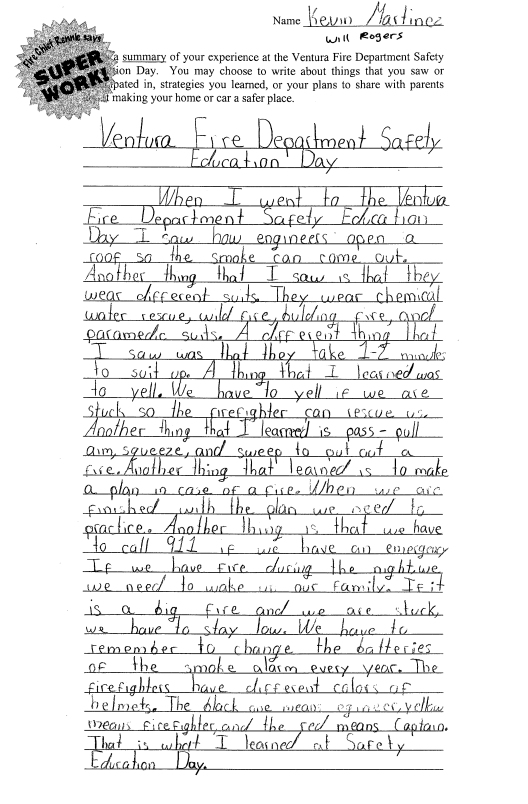 Name Kevin Martinez
Will Rogers
Fire Chief Rennie says
SUPER
WORK!
a summary of your experience at the Ventura Fire Department Safety
ion Day. You may choose to write about things that you saw or
pated in, strategies you learned, or your plans to share with parents
t making your home or car a safer place.
Ventura Fire Department Safety
Education Day
When I went to the Ventura
Fire Department Safety Education
Day I saw how engineers open a
roof so the smoke can come out.
Another thing that I saw is that they
wear different suits. They wear chemical
water rescue, wild fire, building fire, and
paramedic suits. A different thing that
I saw was that they take 1-2 minutes
to suit up. A thing that I learned was
to yell. We have to yell if we are
stuck so the firefighter can rescue us.
Another thing that I learned is pass - pull
aim, squeeze, and sweep to put out a
fire. Another thing that learned is to make
a plan in case of a fire. When we are
finished with the plan we need to
practice. Another thing is that we have
to call 911 if we have an emergency
If we have fire during the night, we
we need to wake us our family. If it
is a big fire and we are stuck,
we have to stay low. We have to
remember to change the batteries
of the smoke alarm every year. The
firefighters have different colors of
helmets. The black one means egineer, yellow
means firefighter, and the red means Captain.
That is what I learned at Safety
Education Day.